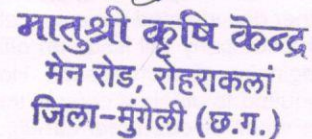 मातुश्री कृषि केन्द्र
मेन रोड, रोहराकलां
जिला-मुंगेली (छ.ग.)